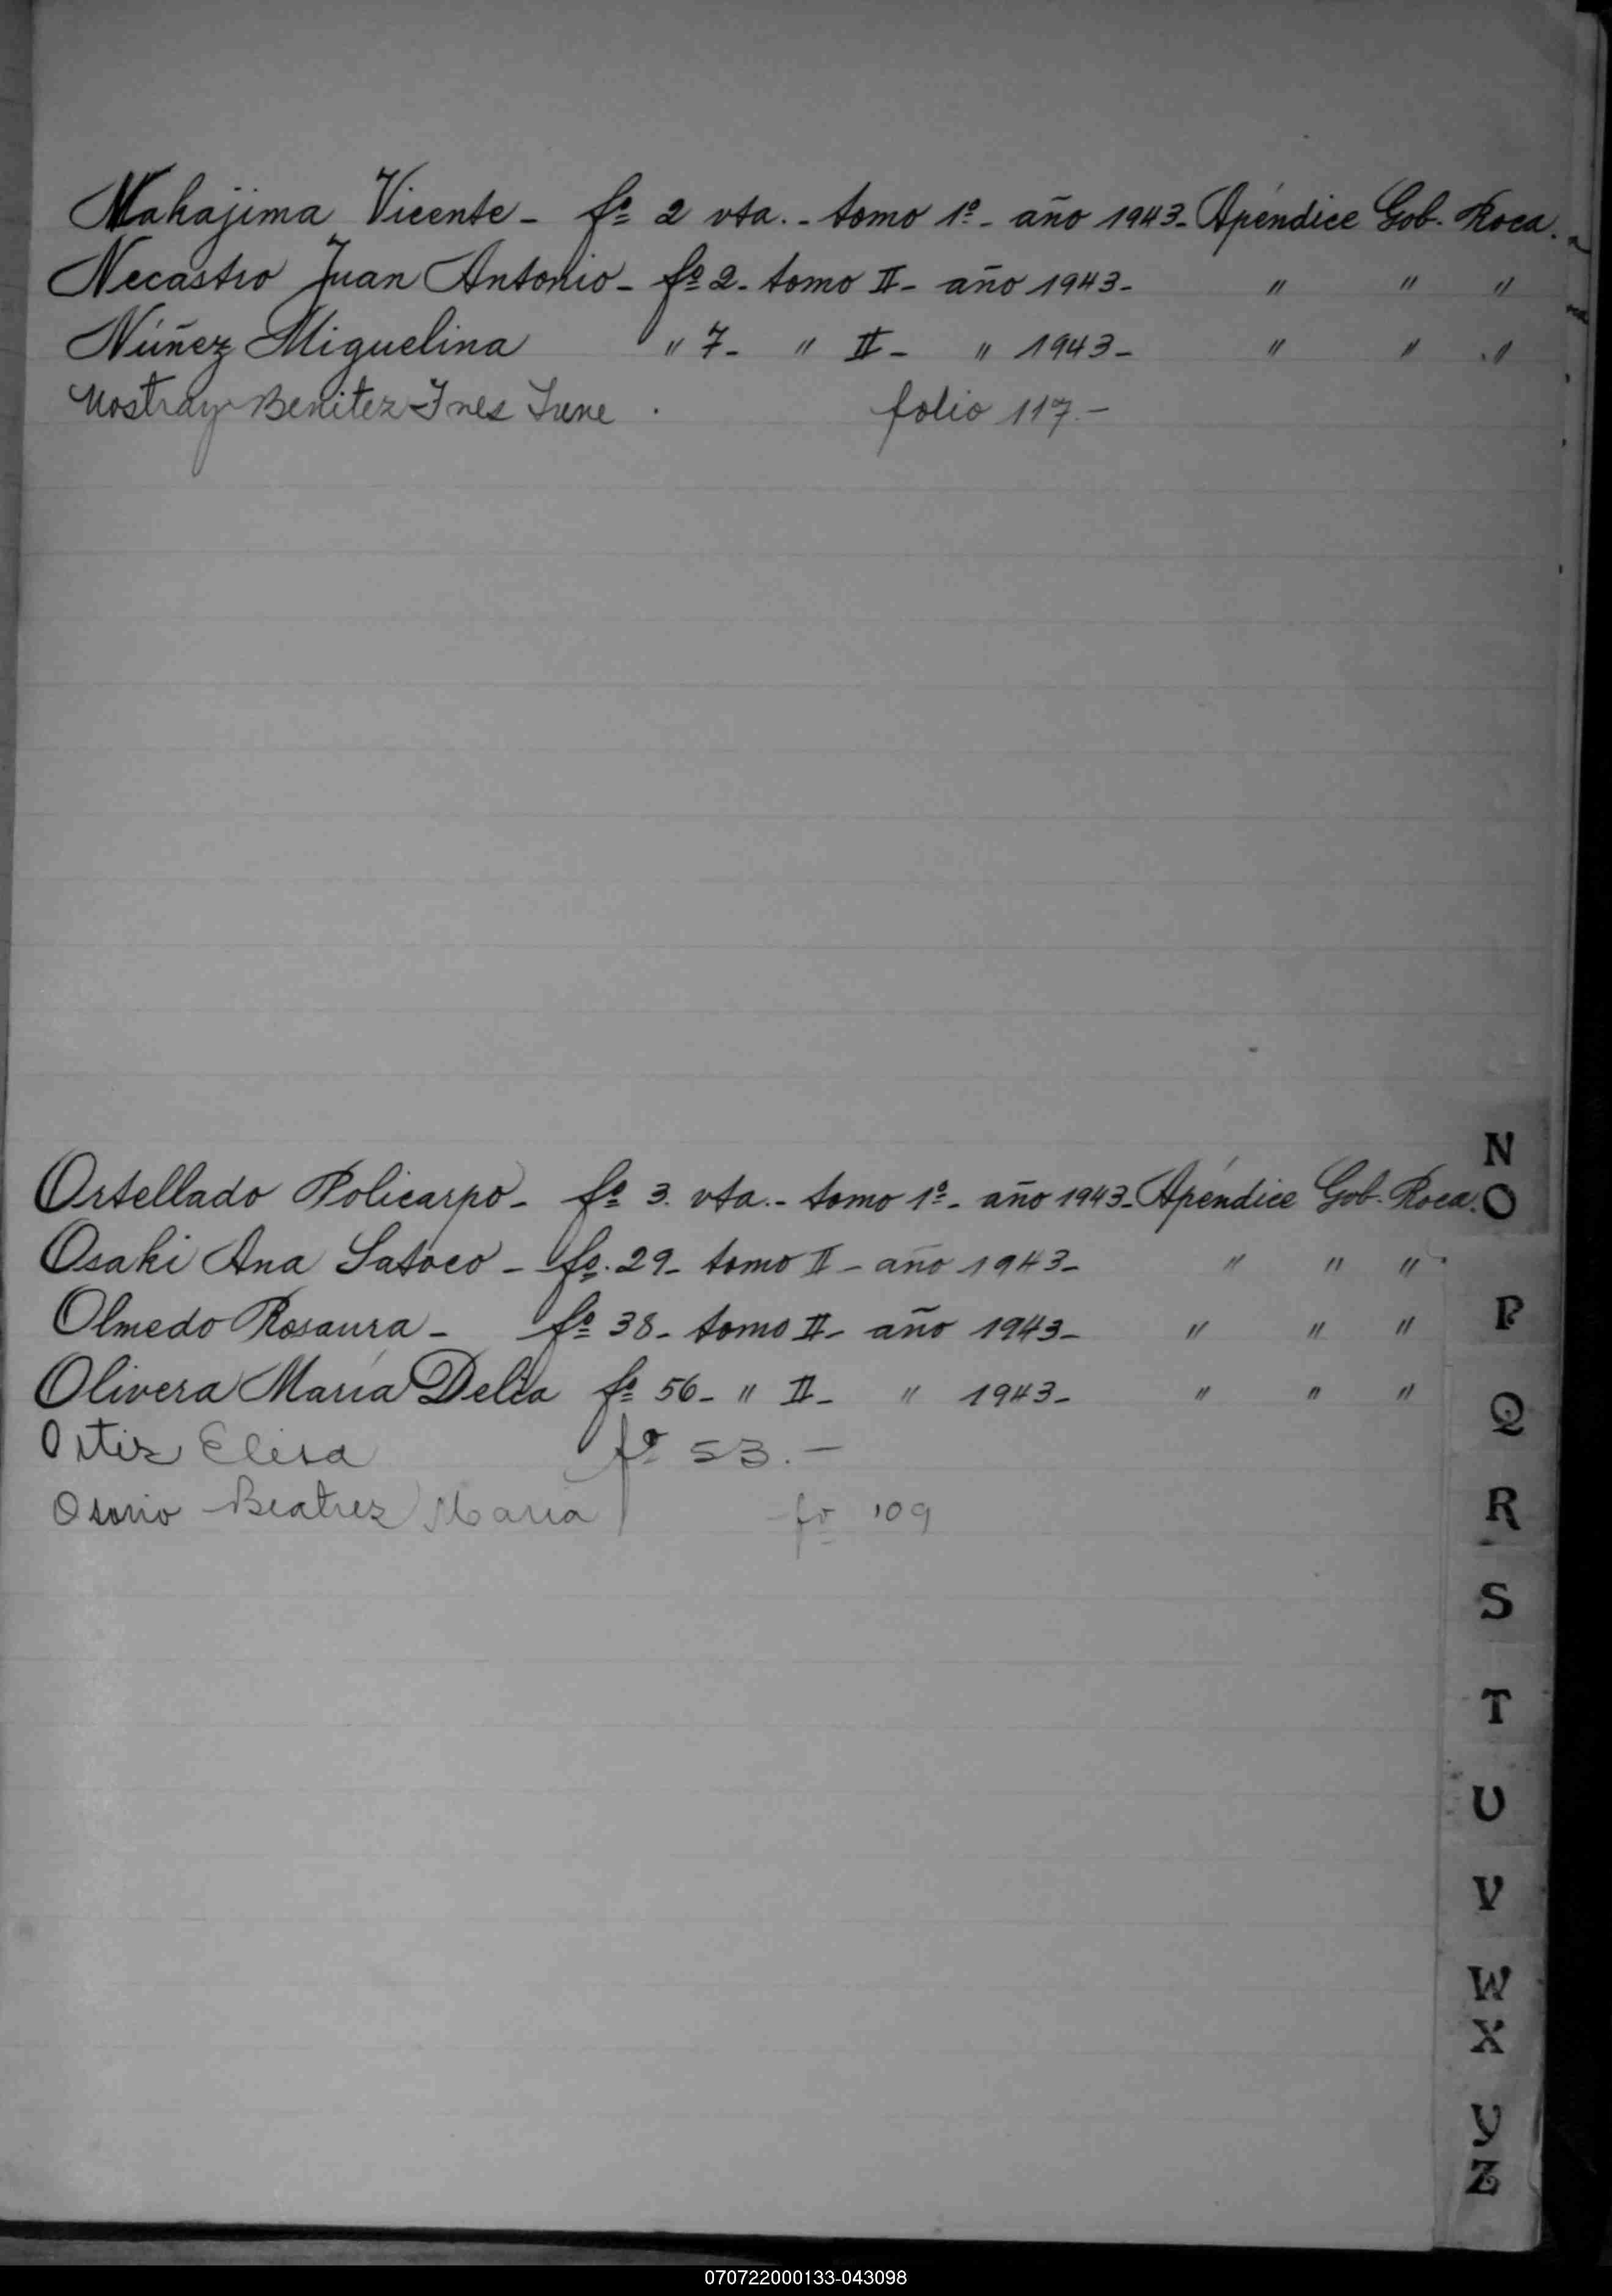 Nakajima Vicente - fº 2 vta. - tomo 1º - año 1943 - Apéndice Gob. Roca.
Necastro Juan Antonio - fº 2 - tomo II - año 1943 - " " "
Núñez Miguelina " 7 - " II - " 1943 - " " "
Nostray Benitez Ines Irene . folio 117.-
N
Ortellado Policarpo - fº 3. vta. - tomo 1º - año 1943 - Apéndice Gob. Roca. O
Osaki Ana Satoco - fº. 29 - tomo II - año 1943 - " " "
Olmedo Rosaura - fº 38 - tomo II - año 1943 - " " " P
Olivera María Delia fº 56 - " II - " 1943 - " " "
Q
Ortiz Elisa fº 53. -
Osorio Beatriz María fº 109
R
S
T
U
V
W
X
Y
Z
070722000133-043098